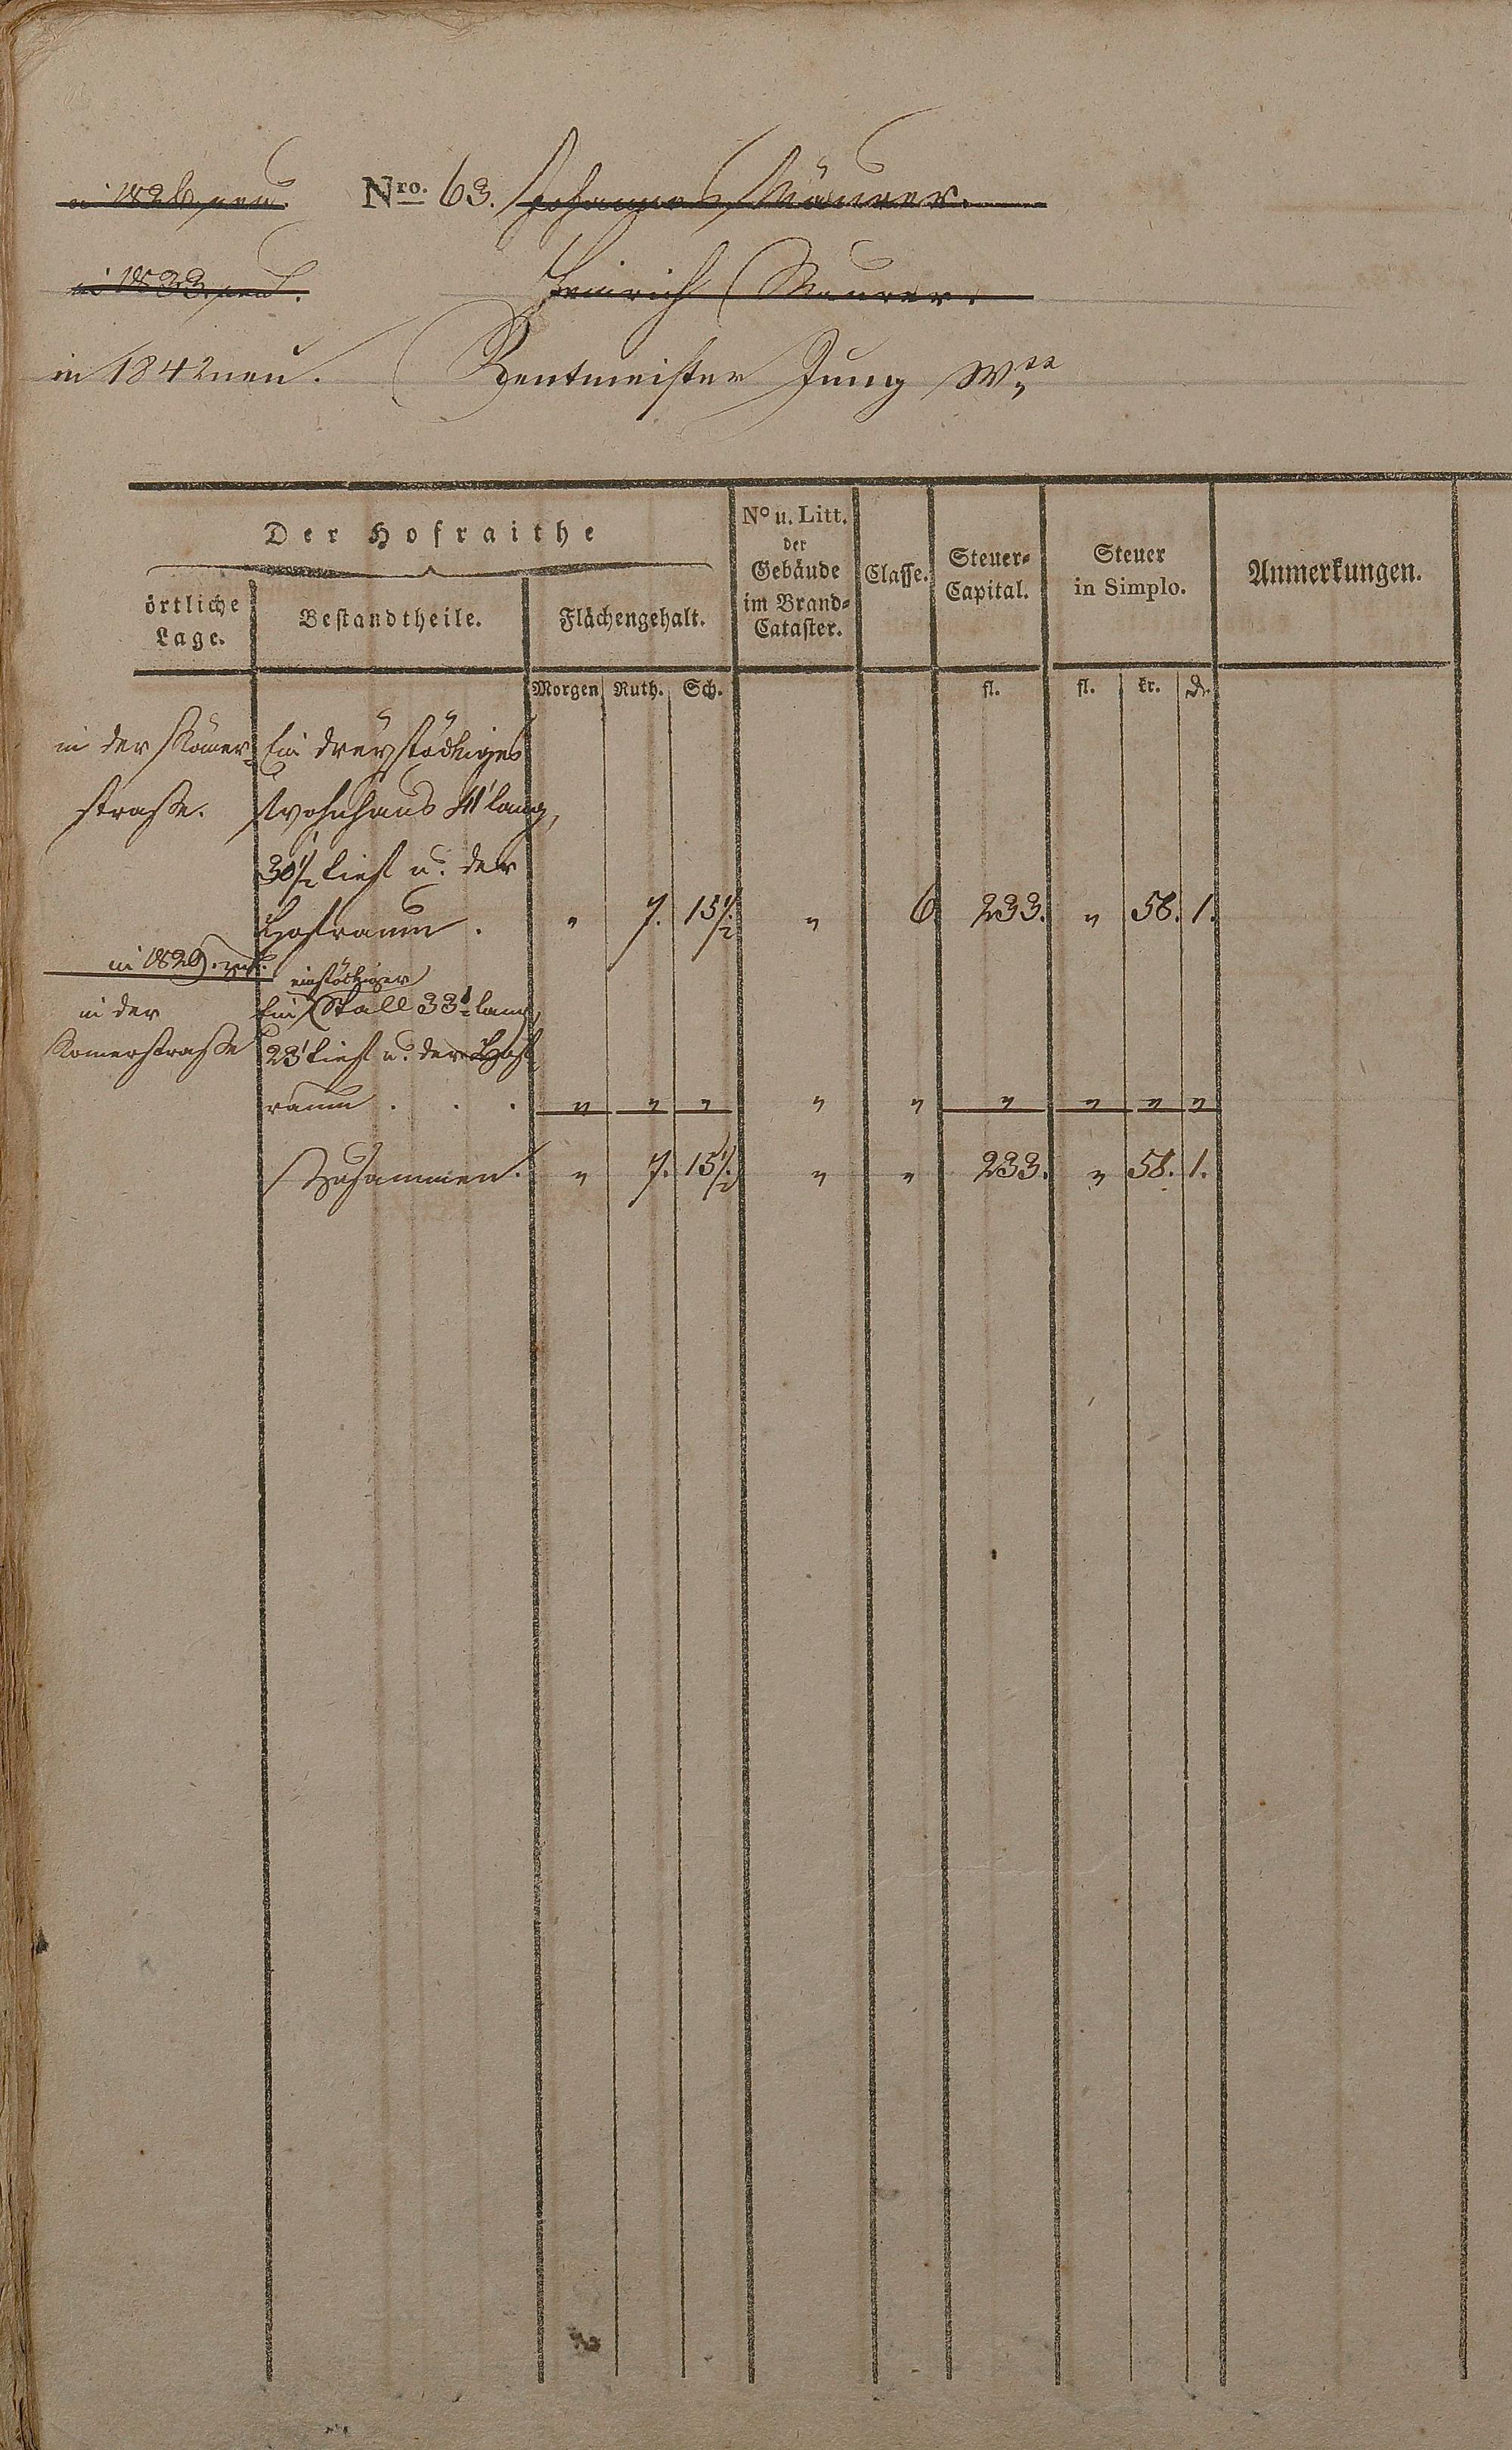 in 1826 neu. Nro. 63. Johannes Mäurer.
in 1833 neu. Heinrich Maurer.
in 1842 neu. Rentmeister Jung Wtt
Der Hofraithe
örtliche Lage.
Bestandtheile.
Flächengehalt.
No u. Litt. der Gebäude im Brand-Cataster.
Classe.
Steuer-Capital.
Steuer in Simplo.
Anmerkungen.
Morgen Ruth. Sch. fl. fl. kr. d.
in der Römer- Ein dreystöckiges
straße. Wohnhaus 41' lang,
30 1/2 tief u. der
Hofraum. " 7. 15 1/2 " 6 233. " 58. 1.
in 1829.
einstöckiger
in der Ein Stall 33' lang,
Römerstraße 23' tief u. der Hof-
raum . . . " " " " " " " " "
Zusammen. " 7. 15 1/2 " " 233. " 58. 1.